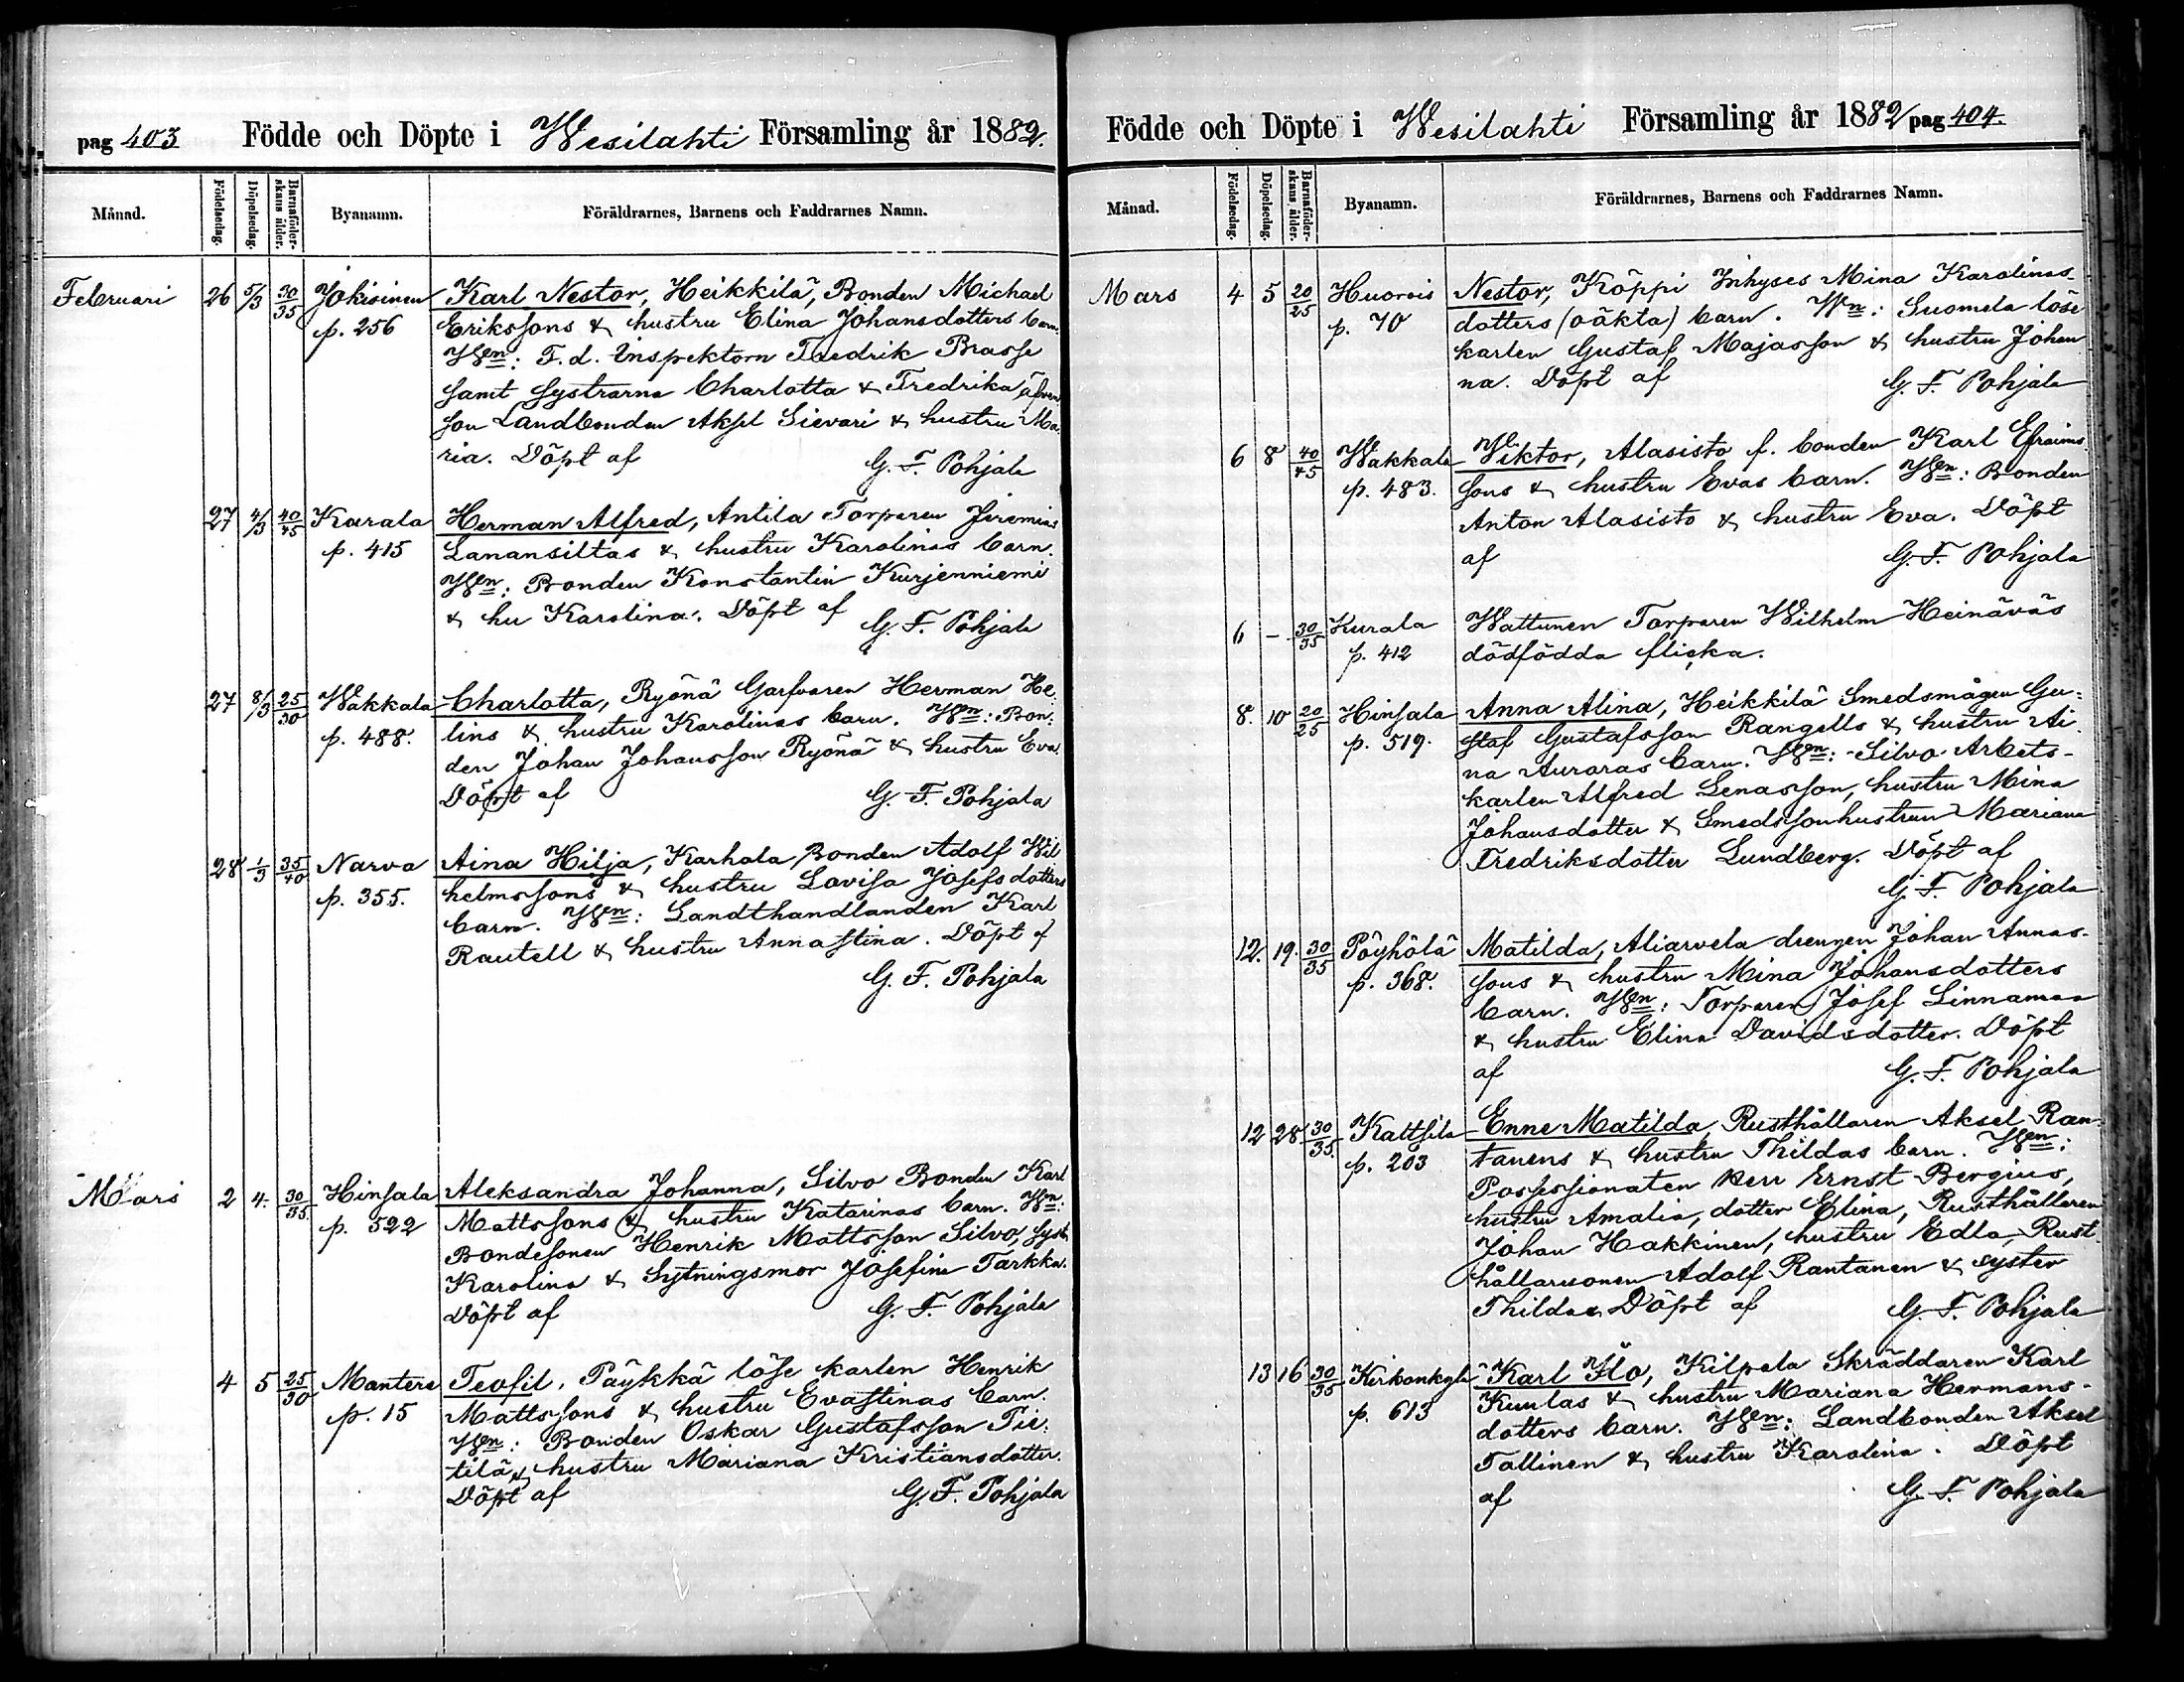 pag 403 Födde och Döpte i Wesilahti Församling år 1882.
Månad. Födelsedag. Döpelsedag. Barnaföderskans ålder. Byanamn. Föräldrarnes, Barnens och Faddrarnes Namn.
Februari 26 5/3 30/35 Jokisinen Karl Nestor, Heikkilä, Bonden Michael
p. 256 Erikssons & hustru Elina Johansdotters barn.
W:en: F. d. Inspektorn Fredrik Brasse
samt systrarna Charlotta & Fredrika, äfven
son Landbonden Aksel Sievari & hustru Ma-
ria. Döpt af G. F. Pohjala
27 4/3 40/45 Karala Herman Alfred, Antila Torparen Jeremias
p. 415 Lanansiltas & hustru Karolinas barn.
W:en: Bonden Konstantin Kurjenniemi
& hu Karolina. Döpt af G. F. Pohjala
27 8/3 25/30 Wakkala Charlotta, Ryönä Garfvaren Herman He-
p. 488. lins & hustru Karolinas barn. W:en: Bon-
den Johan Johansson Ryönä & hustru Eva.
Döpt af G. F. Pohjala
28 1/3 35/40 Narva Aina Hilja, Karhala Bonden Adolf Wil
p. 355. helmssons & hustru Lovisa Josefsdotters
barn. W:en: Landthandlanden Karl
Rautell & hustru Annastina. Döpt af
G. F. Pohjala
Mars 2 4. 30/35. Hinsala Aleksandra Johanna, Silvo Bonden Karl
p. 522 Mattssons & hustru Katarinas barn. W:en:
Bondesonen Henrik Mattsson Silvo, syst.
Karolina & Sytningsmor Josefina Tarkka.
Döpt af G. F. Pohjala
4 5 25/30 Mantere Teofil, Päykkä löse karlen Henrik
p. 15 Mattssons & hustru Evastinas barn.
W:en: Bonden Oskar Gustafsson Tie-
tilä & hustru Mariana Kristiansdotter.
Döpt af G. F. Pohjala
Födde och Döpte i Wesilahti Församling år 1882 pag 404.
Månad. Födelsedag. Döpelsedag. Barnaföderskans ålder. Byanamn. Föräldrarnes, Barnens och Faddrarnes Namn.
Mars 4 5 20/25 Huorois Nestor, Köppi Inhyses Mina Karolinas-
p. 70 dotters (oäkta) barn. W:en: Suomela löse
karlen Gustaf Majasson & hustru Johan
na. Döpt af G. F. Pohjala
6 8 40/45 Wakkala Wiktor, Alasisto f. bonden Karl Efraims
p. 483. sons & hustru Evas barn. W:en: Bonden
Anton Alasisto & hustru Eva. Döpt
af G. F. Pohjala
6 - 30/35 Kurala Wattunen Torparen Wilhelm Heinäväs
p. 412 dödfödda flicka.
8. 10 20/25 Hinsala Anna Alina, Heikkilä Smedsmågen Gu-
p. 519. staf Gustafsson Rangells & hustru Ai
na Auroras barn. W:en: Silvo Arbets-
karlen Alfred Lenasson, hustru Mina
Johansdotter & Smedssonhustrun Mariana
Fredriksdotter Lundberg. Döpt af
G. F. Pohjala
12. 19. 30/35 Pöyhölä Matilda, Aliarvela drengen Johan Annas-
p. 368. sons & hustru Mina Johansdotters
barn. W:en: Torparen Josef Linnamaa
& hustru Elina Davidsdotter. Döpt
af G. F. Pohjala
12 28 30/35. Kaltsila Enne Matilda, Rusthållaren Aksel Ran-
p. 203 tanens & hustru Thildas barn. W:en:
Possessionaten Herr Ernst Bergius,
hustru Amalia, dotter Elina, Rusthållaren
Johan Hakkinen, hustru Edla, Rust-
hållarsonen Adolf Rantanen & syster
Thilda. Döpt af G. F. Pohjala
13 16 30/35 Kirkonkylä Karl Ilo, Kilpala Skräddaren Karl
p. 613 Kuulas & hustru Mariana Hermans-
dotters barn. W:en: Landbonden Aksel
Tallinen & hustru Karolina. Döpt
af G. F. Pohjala